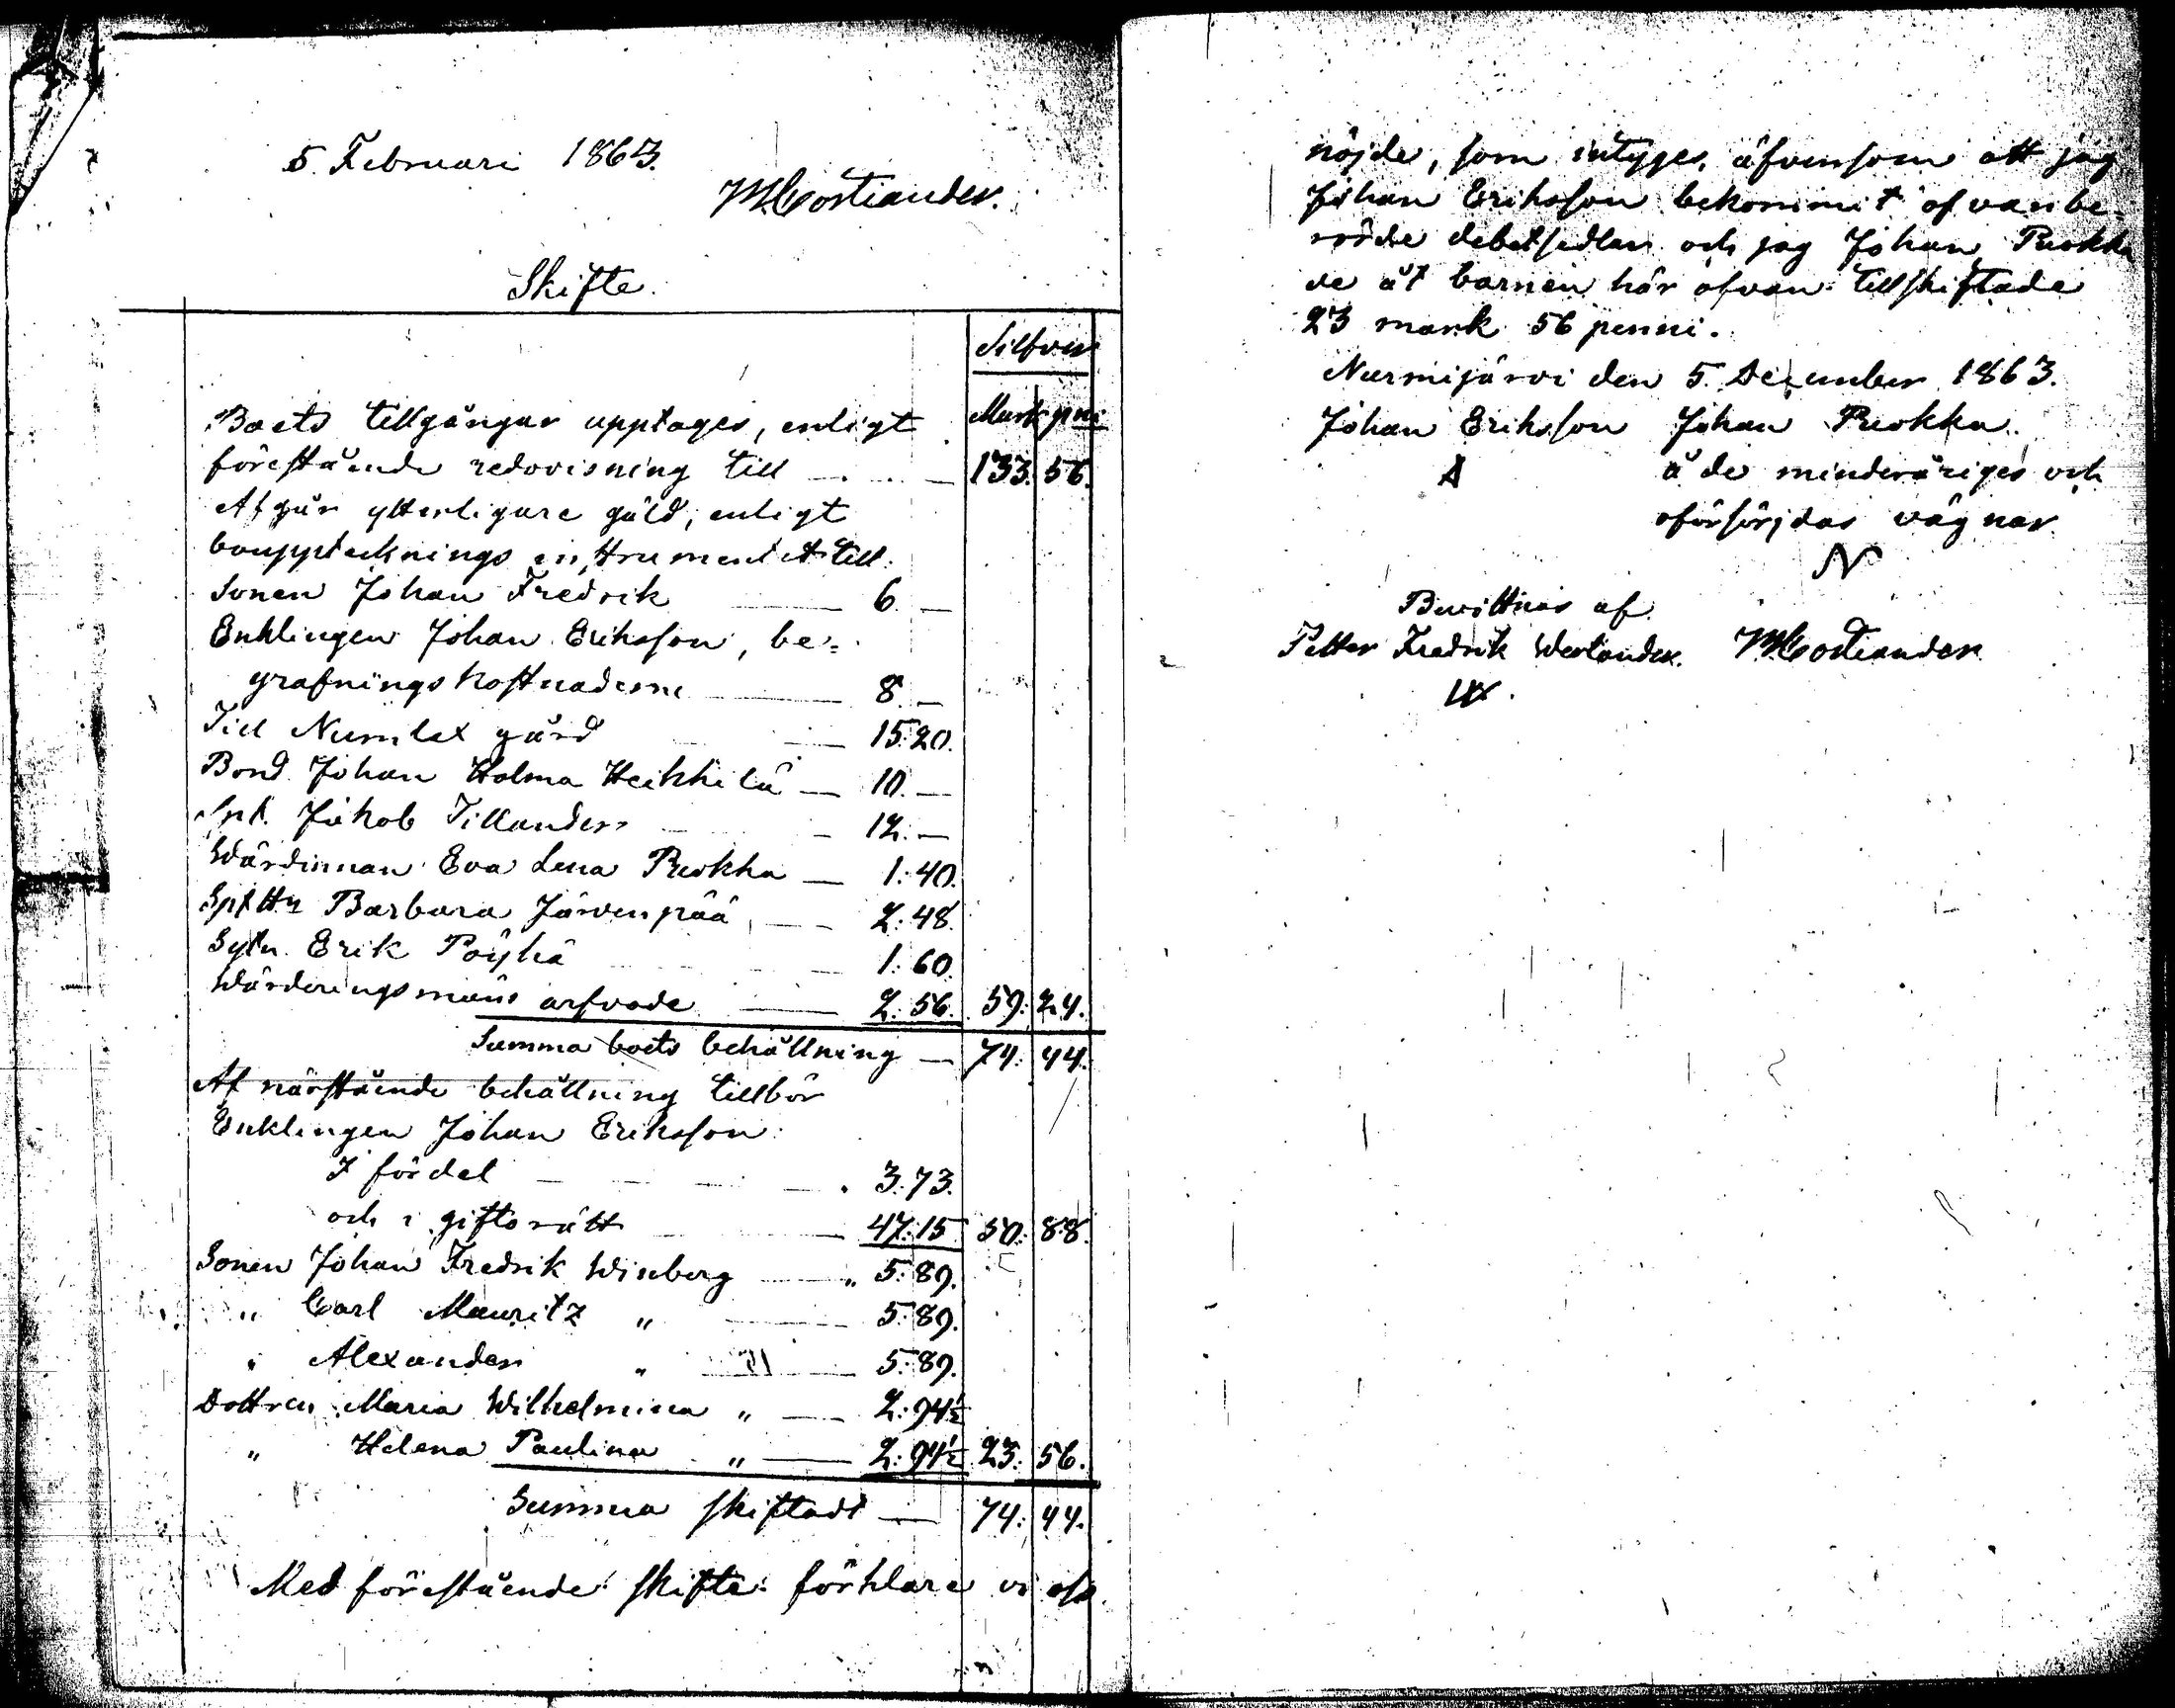 5. Februari 1863.
M Costiander.
Skifte.
Silfver
Mark pni
Boets tillgångar upptages, enligt
förestående redovisning till — 133. 56.
Afgår ytterligare gäld, enligt
bouppteknings instrumentet till
Sonen Johan Fredrik — 6. —
Enklingen Johan Eriksson, be=
grafningskostnaderne — 8. —
Till Numlax gård — 15. 20.
Bond. Johan Holma Heikkilä — 10. —
Spt. Jakob Tillander — 12. —
Wärdinnan Eva Lena Ruokka — 1. 40.
Barbara Järvenpää — 2. 48.
Sytn. Erik Pöyhä — 1. 60.
Wärderingsmäns arfvode — 2. 56. 59. 24.
Summa boets behållning — 74. 44.
Af närstående behållning tillbör
Enklingen Johan Eriksson
I fördel — 3. 73.
och i giftorätt — 47. 15 50. 88.
Sonen Johan Fredrik Winberg — " 5. 89.
" Carl Mauritz " — 5. 89.
" Alexander " — 5. 89.
Dottren Maria Wilhelmina " — 2. 94½
" Helena Paulina " — 2. 94½ 23. 56.
Summa skiftadt — 74. 44.
Med förestående skifte förklare vi oss
nöjde, som intyges, äfvensom att jag
Johan Eriksson bekommit ofvanbe=
rörde debetsedlar och jag Johan Ruokka
de åt barnen här ofvan tillskiftade
23 mark 56 penni.
Nurmijärvi den 5. December 1863.
Johan Eriksson Johan Ruokka
å de minderåriges och
oförsörjdas vägnar
Bevittnas af
Petter Fredrik Westander. M Costiander